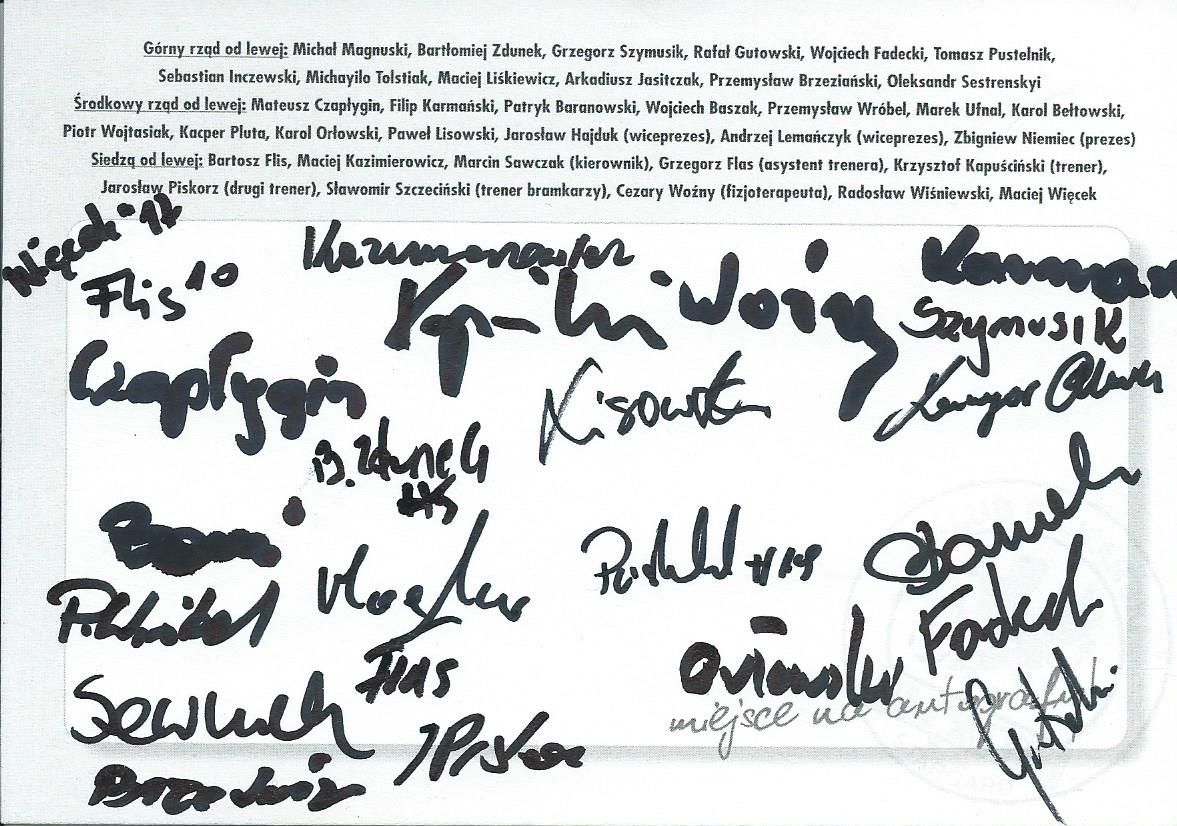 Górny rząd od lewej: Michał Magnuski, Bartłomiej Zdunek, Grzegorz Szymusik, Rafał Gutowski, Wojciech Fadecki, Tomasz Pustelnik,
Sebastian Inczewski, Michayilo Tolstiak, Maciej Liśkiewicz, Arkadiusz Jasitczak, Przemysław Brzeziański, Oleksandr Sestrenskyi
Środkowy rząd od lewej: Mateusz Czapłygin, Filip Karmański, Patryk Baranowski, Wojciech Baszak, Przemysław Wróbel, Marek Ufnal, Karol Bełtowski,
Piotr Wojtasiak, Kacper Pluta, Karol Orłowski, Paweł Lisowski, Jarosław Hajduk (wiceprezes), Andrzej Lemańczyk (wiceprezes), Zbigniew Niemiec (prezes)
Siedzą od lewej: Bartosz Flis, Maciej Kazimierowicz, Marcin Sawczak (kierownik), Grzegorz Flas (asystent trenera), Krzysztof Kapuściński (trener),
Jarosław Piskorz (drugi trener), Sławomir Szczeciński (trener bramkarzy), Cezary Woźny (fizjoterapeuta), Radosław Wiśniewski, Maciej Więcek
Więcek 17
Flis 10
Woźny
Szymusik
Czapłygin
Lisowski
B. Zdunek
P. Wróbel
Fadecki
Flas
Orłowski
miejsce na autografy